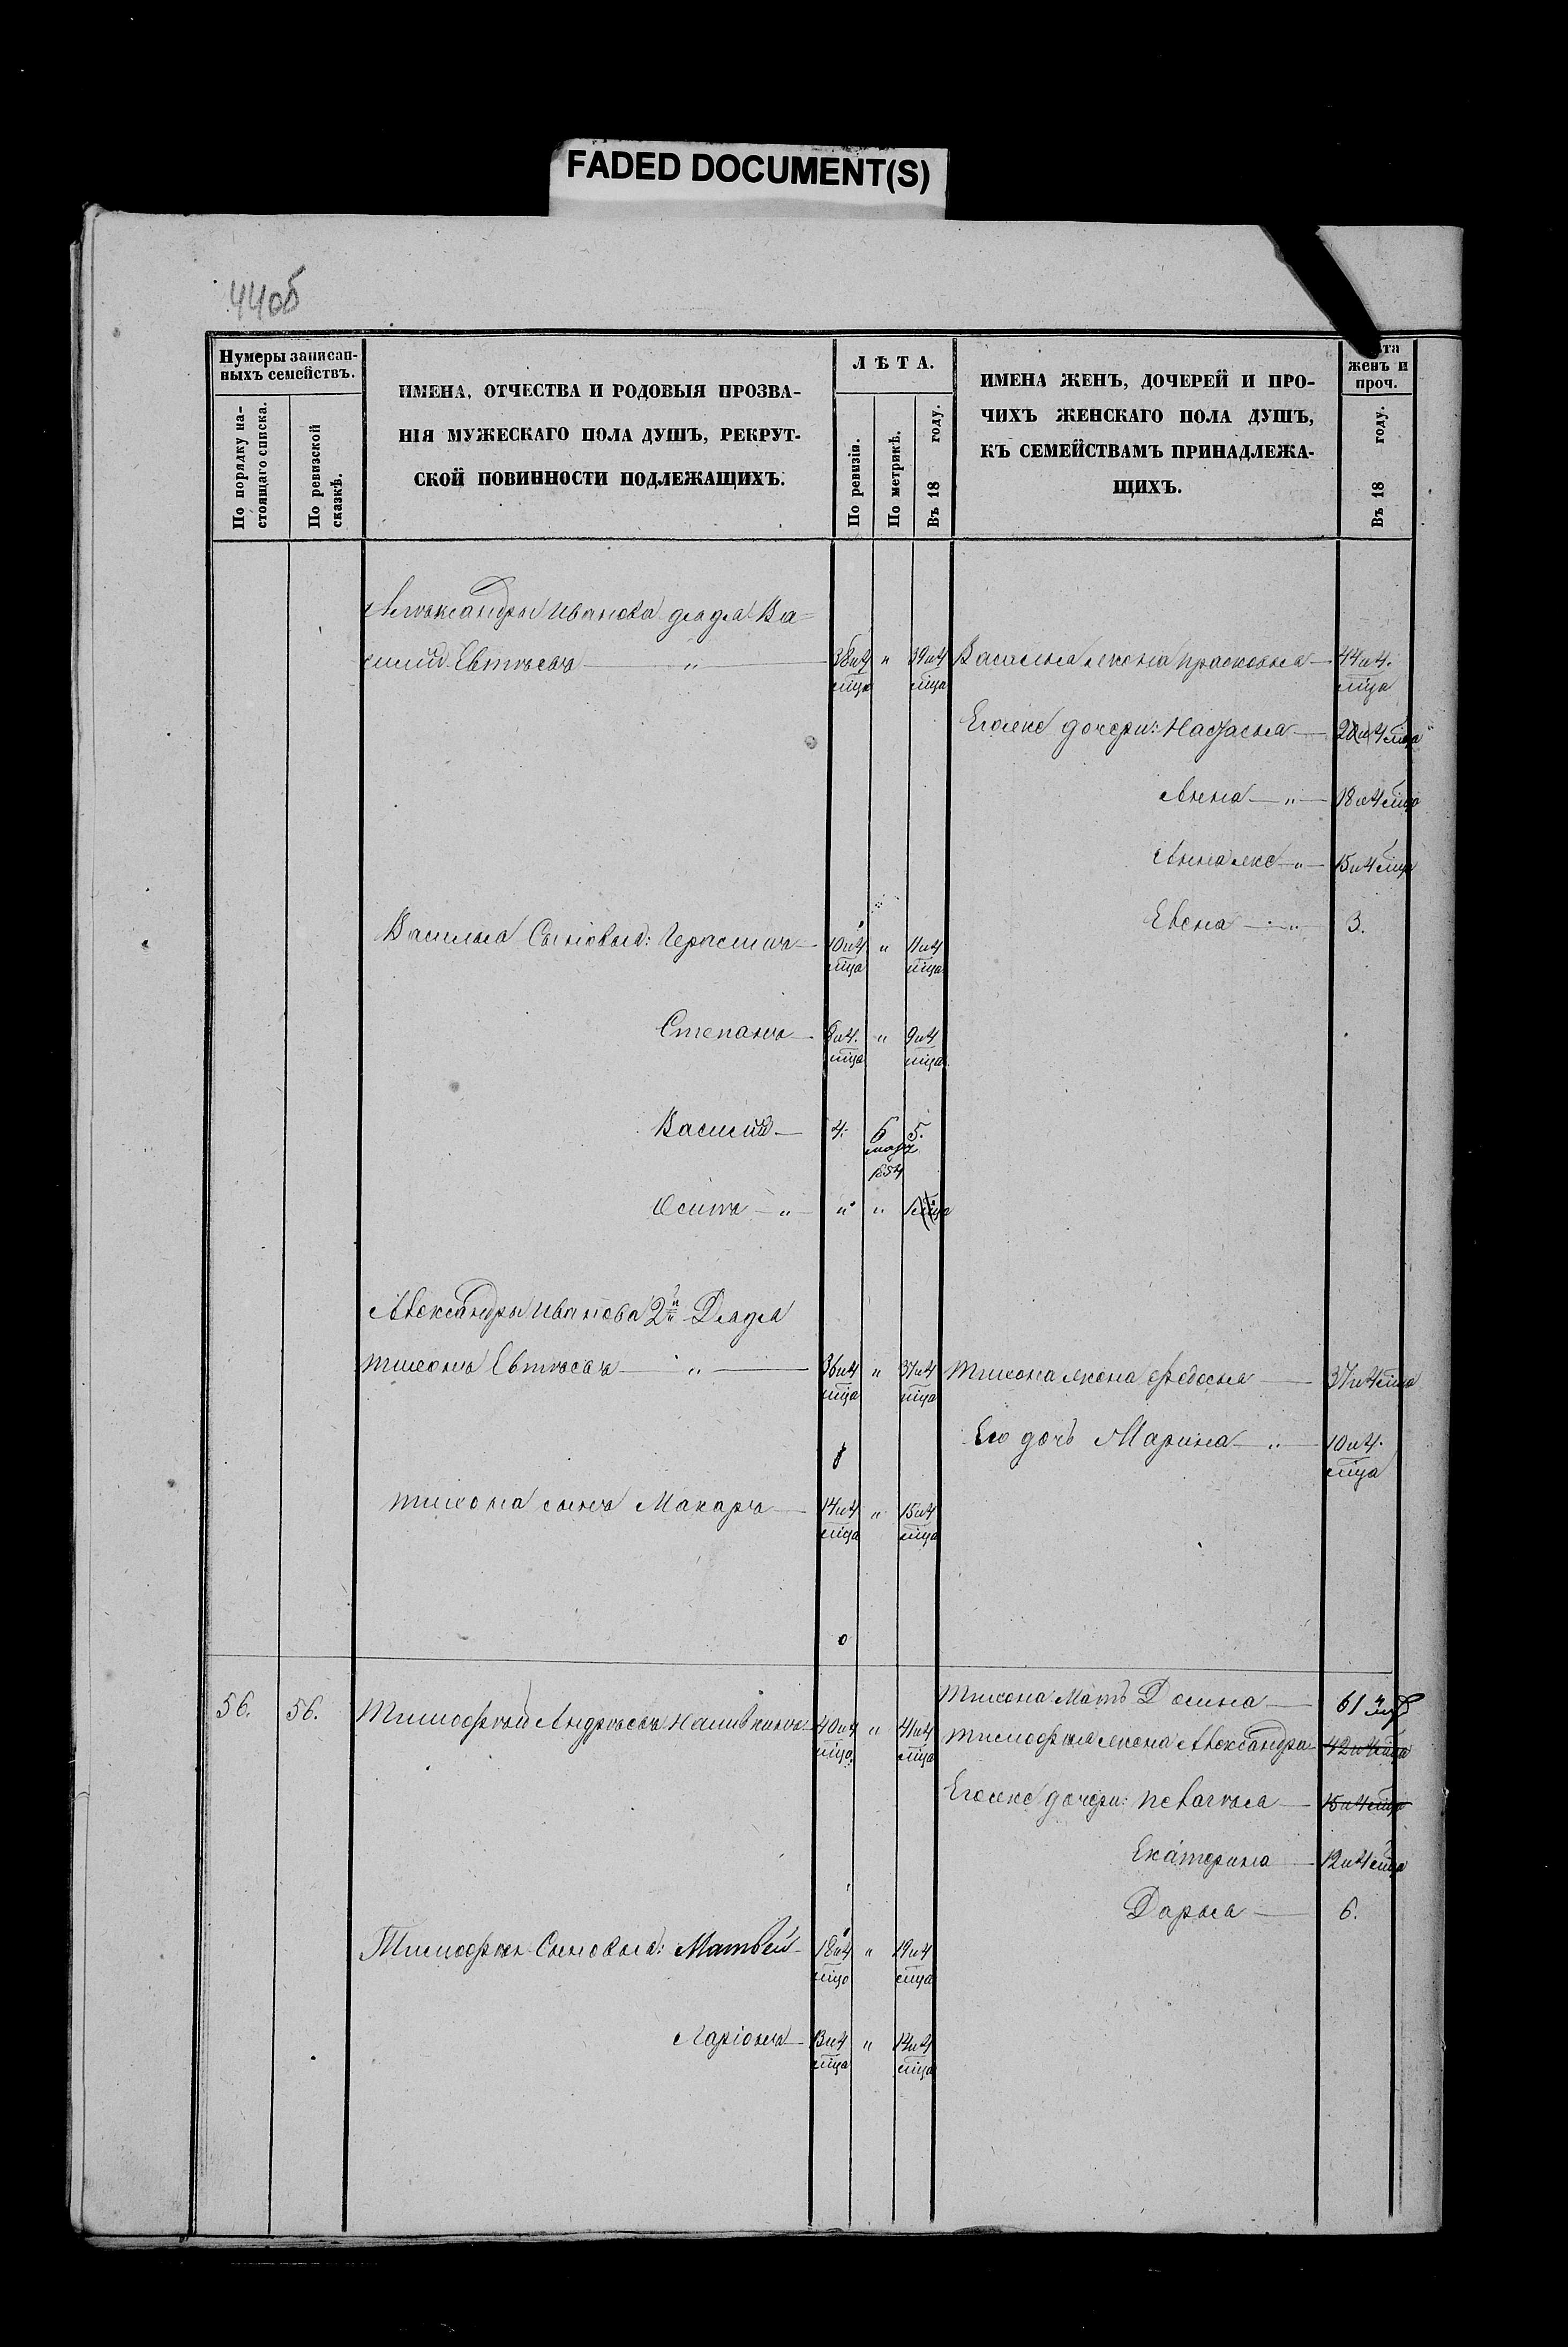 FADED DOCUMENT(S)
44об
Нумеры записан-
ныхъ семействъ.
По порядку на-
стоящаго списка.
По ревизской
сказкѣ.
ИМЕНА, ОТЧЕСТВА И РОДОВЫЯ ПРОЗВА-
НІЯ МУЖЕСКАГО ПОЛА ДУШЪ, РЕКРУТ-
СКОЙ ПОВИННОСТИ ПОДЛЕЖАЩИХЪ.
ЛѢТА.
По ревизіи.
По метрикѣ.
Въ 18 году.
ИМЕНА ЖЕНЪ, ДОЧЕРЕЙ И ПРО-
ЧИХЪ ЖЕНСКАГО ПОЛА ДУШЪ,
КЪ СЕМЕЙСТВАМЪ ПРИНАДЛЕЖА-
ЩИХЪ.
женъ и
проч.
Въ 18 году.
Александры Иванова дядя Ва=
силий Евтѣевъ — " — 38и4 мца " 39и4 мца Василья жена Прасковья — 44и4. мца
Егожъ дочери: Настасья — и 4 мца
Анна — " — 18и4мца
Анна же — " — 15и4мца
Василья Сыновья: Герасимъ — 10и4 мца " 11и4 мца — " — 3.
Степанъ — 8и4. мца " 9и4 мца
Василий — 4. 6 марта 1854 5.
Осипъ — " — " "
Александры Иванова 2й Дядя
Тихонъ Евтѣевъ — " — 36и4 мца " 37и4 мца Тихона жена Федосья — 37и4мца
Его дочь Марина — " — 10и4. мца
Тихона сынъ Макаръ — 14и4 мца " 15и4 мца
Тихона Мать — 61
56. 56. Тимофѣй Андрѣевъ 40и4 мца. " 41и4 мца Тимофѣя жена Александра — 42и4мца
Егожъ дочери: Пелагѣя — 15и4мца
Екатерина — 12и4мца
Дарья — 6.
Тимофѣя Сыновья: Матвей — 18и4 мца " 19и4 мца
Ларіонъ — 13и4 мца " 14и4 мца